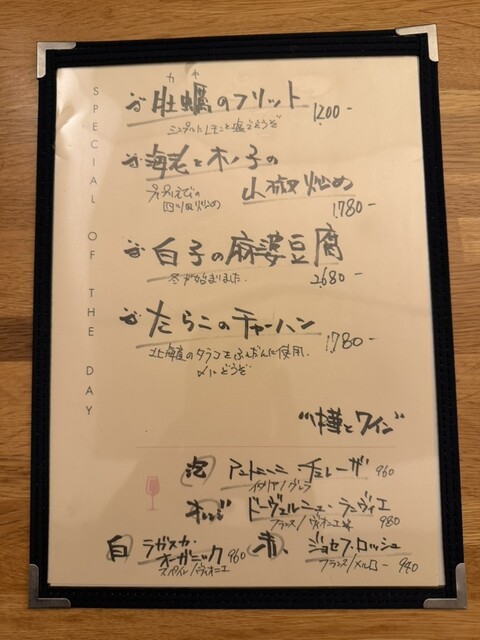 SPECIAL OF THE DAY
カキ
牡蠣のフリット 1200-
シンプルにレモンと塩でどうぞ
海老と木ノ子の
プリプリえびの 山椒炒め
四川風炒め 1,780-
白子の麻婆豆腐
冬が始まりました。 2,680-
たらこのチャーハン
北海道のタラコをふんだんに使用。 1,780-
〆にどうぞ
"樽とワイン"
泡 アントニーニ チェレーザ 960
イタリア/グレラ
オレンジ ドーヴェルニュ・ランヴィエ
フランス/ヴィオニエ 980
白 ラガスカ・ 赤 ジョセフ・ロッシュ
オーガニック 960 フランス/メルロー 940
スペイン/ヴィオニエ